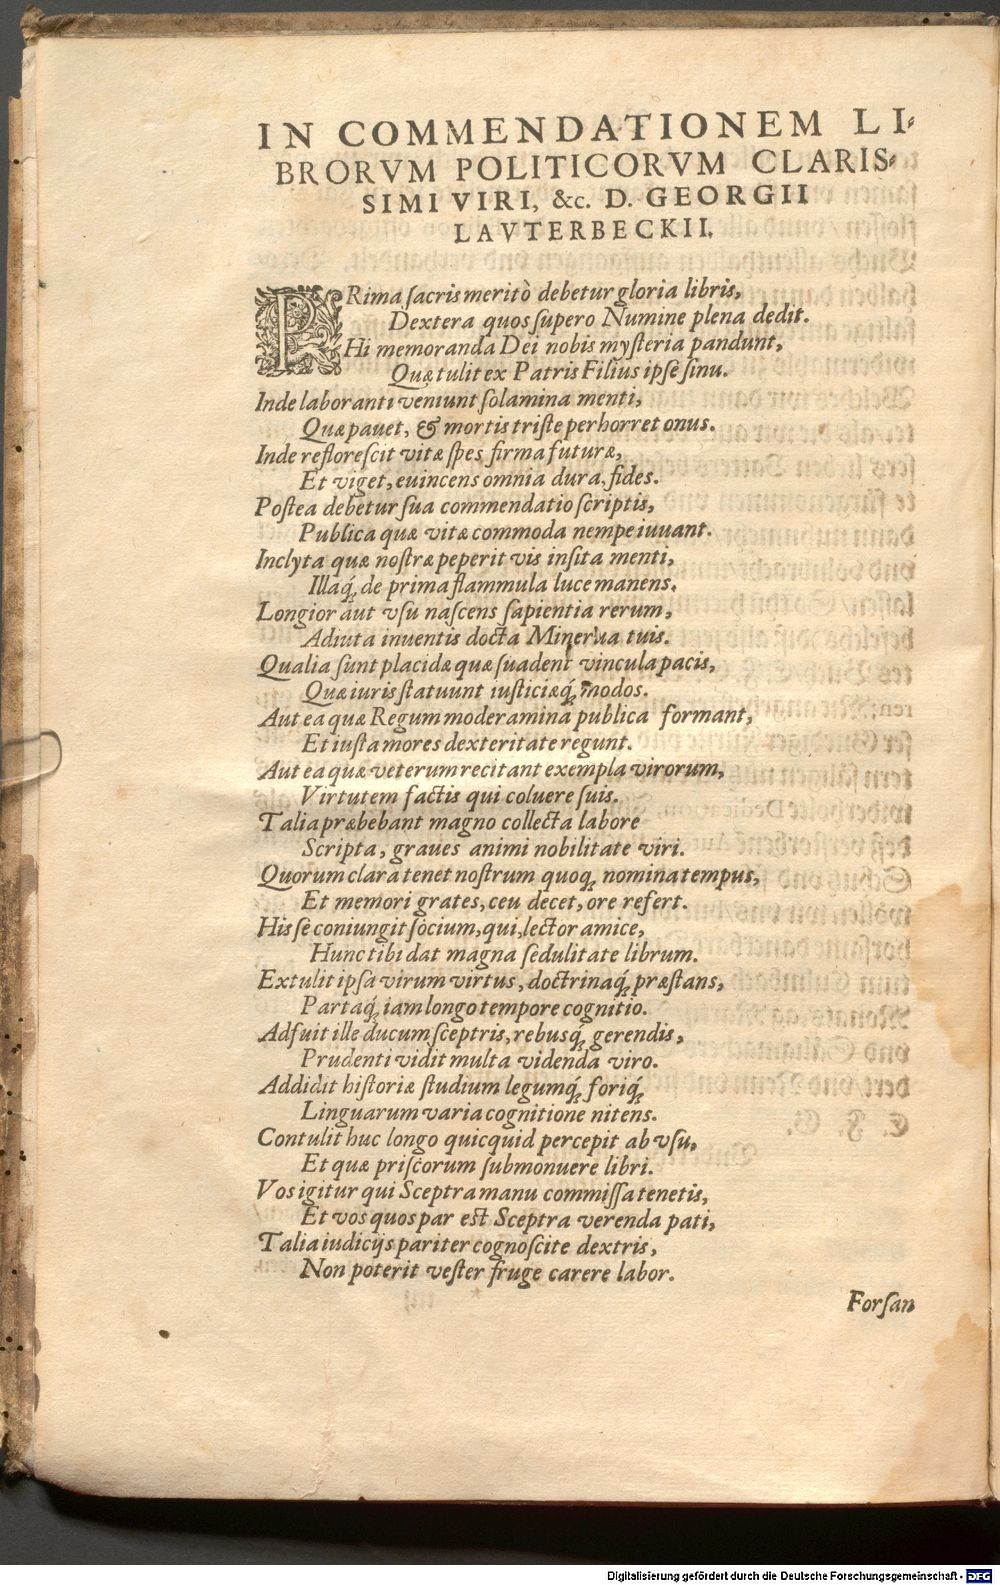 IN COMMENDATIONEM LI-
BRORVM POLITICORVM CLARIS-
SIMI VIRI, &c. D. GEORGII
LAVTERBECKII.
PRima ſacris meritò debetur gloria libris,
Dextera quos ſupero Numine plena dedit.
Hi memoranda Dei nobis myſteria pandunt,
Quæ tulit ex Patris Filius ipſe ſinu.
Inde laboranti veniunt ſolamina menti,
Quæ pauet, & mortis triſte perhorret onus.
Inde refloreſcit vitæ ſpes firma futuræ,
Et viget, euincens omnia dura, fides.
Poſtea debetur ſua commendatio ſcriptis,
Publica quæ vitæ commoda nempe iuuant.
Inclyta quæ noſtræ peperit vis inſita menti,
Illaq́; de prima flammula luce manens.
Longior aut vſu naſcens ſapientia rerum,
Adiuta inuentis docta Minerua tuis.
Qualia ſunt placidæ quæ ſuadent vincula pacis,
Quæ iuris ſtatuunt iuſticiæq́; modos.
Aut ea quæ Regum moderamina publica formant,
Et iuſta mores dexteritate regunt.
Aut ea quæ veterum recitant exempla virorum,
Virtutem factis qui coluere ſuis.
Talia præbebant magno collecta labore
Scripta, graues animi nobilitate viri.
Quorum clara tenet noſtrum quoq; nomina tempus,
Et memori grates, ceu decet, ore refert.
His ſe coniungit ſocium, qui, lector amice,
Hunc tibi dat magna ſedulitate librum.
Extulit ipſa virum virtus, doctrinaq́; præſtans,
Partaq́; iam longo tempore cognitio.
Adfuit ille ducum ſceptris, rebusq́; gerendis,
Prudenti vidit multa videnda viro.
Addidit hiſtoriæ ſtudium legumq́; foriq́;
Linguarum varia cognitione nitens.
Contulit huc longo quicquid percepit ab vſu,
Et quæ priſcorum ſubmonuere libri.
Vos igitur qui Sceptra manu commiſſa tenetis,
Et vos quos par eſt Sceptra verenda pati,
Talia iudicijs pariter cognoſcite dextris,
Non poterit veſter fruge carere labor.
Forſan
Digitalisierung gefördert durch die Deutsche Forschungsgemeinschaft - DFG